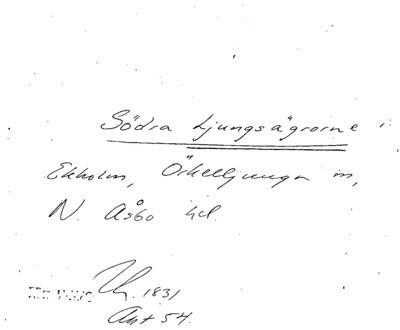 Södra Ljungsägrorne i
Ekholm, Örkelljunga m,
N. Åsbo hd.
1831
Ant 54.